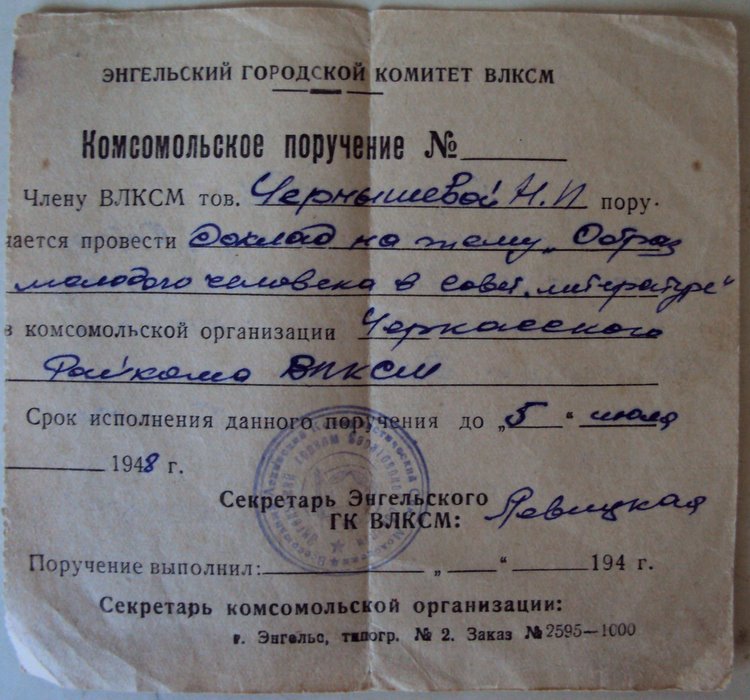 ЭНГЕЛЬСКИЙ ГОРОДСКОЙ КОМИТЕТ ВЛКСМ
Комсомольское поручение №
Члену ВЛКСМ тов. Чернышевой Н. И пору-
чается провести доклад на тему „Образ
молодого человека в совет. литературе"
в комсомольской организации Черкасского
Райкома ВЛКСМ
Срок исполнения данного поручения до „5" июля
1948 г.
Секретарь Энгельского
ГК ВЛКСМ: Левицкая
Поручение выполнил: „ " 194 г.
Секретарь комсомольской организации:
г. Энгельс, типогр. № 2. Заказ № 2595—1000